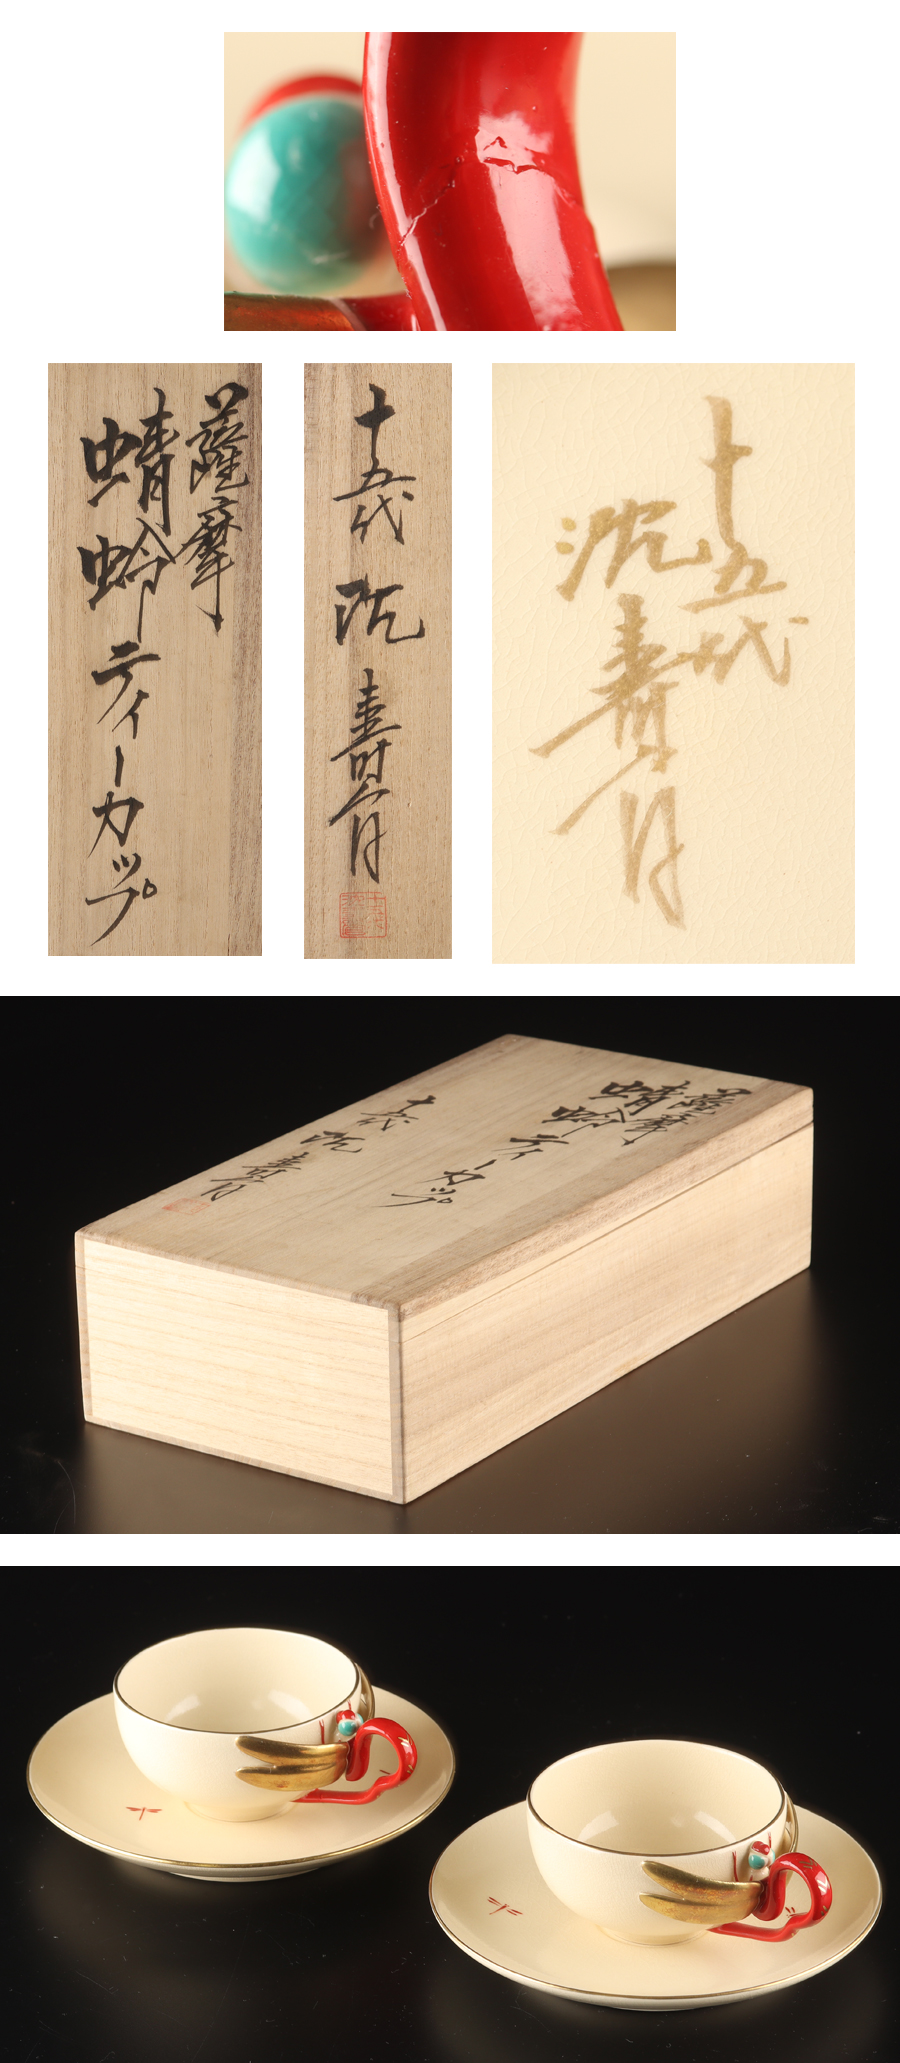 薩摩
蜻蛉ティーカップ
十五代
沈
壽官
十五代
沈壽官
薩摩
蜻蛉
ティーカップ
十五代
沈
壽官